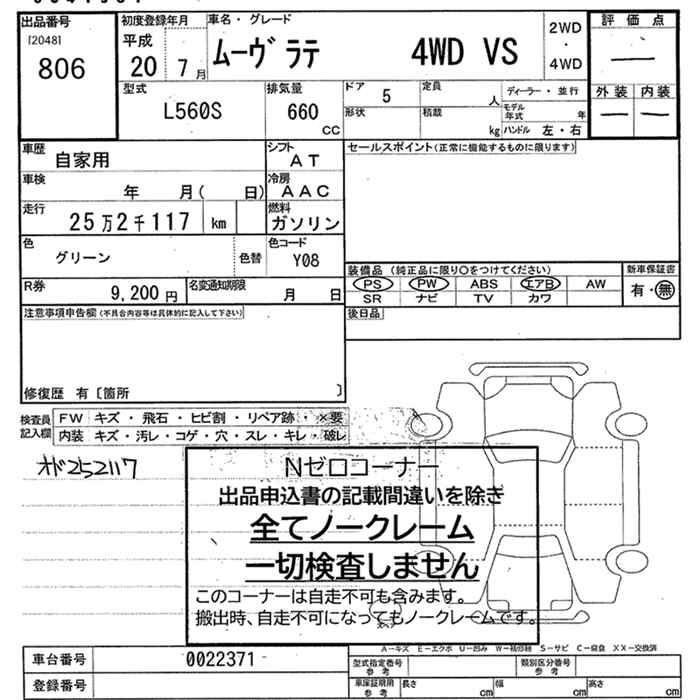 出品番号
[2048]
806
初度登録年月
平成
20 7月
車名・グレード
ムーヴ ラテ 4WD VS
2WD
・
4WD
評価点
—
外装 内装
— —
型式
L560S
排気量
660
CC
ドア
5
定員
人
形状
積載
kg
ディーラー・並行
モデル年式 年
ハンドル 左・右
車歴
自家用
シフト
AT
セールスポイント(正常に機能するものに限ります)
車検
年 月( 日)
冷房
AAC
走行
25万2千117 km
燃料
ガソリン
色
グリーン
色替
色コード
Y08
装備品 (純正品に限り○をつけてください)
新車保証書
PS PW ABS エアB AW
有・無
SR ナビ TV カワ
R券
9,200円
名変通知期限
月 日
後日品
注意事項申告欄(不具合内容等は具体的に記入して下さい)
修復歴 有 〔箇所 〕
検査員
記入欄
FW キズ・飛石・ヒビ割・リペア跡・×要
内装 キズ・汚レ・コゲ・穴・スレ・キレ・破レ
オド252117
Nゼロコーナー
出品申込書の記載間違いを除き
全てノークレーム
一切検査しません
このコーナーは自走不可も含みます。
搬出時、自走不可になってもノークレームです。
A-キズ E-エクボ U-凹み W-補修跡 S-サビ C-腐食 XX-交換済
車台番号
0022371
型式指定番号
参考
類別区分番号
参考
登録番号
車庫証明用
参考
長さ cm
幅 cm
高さ cm